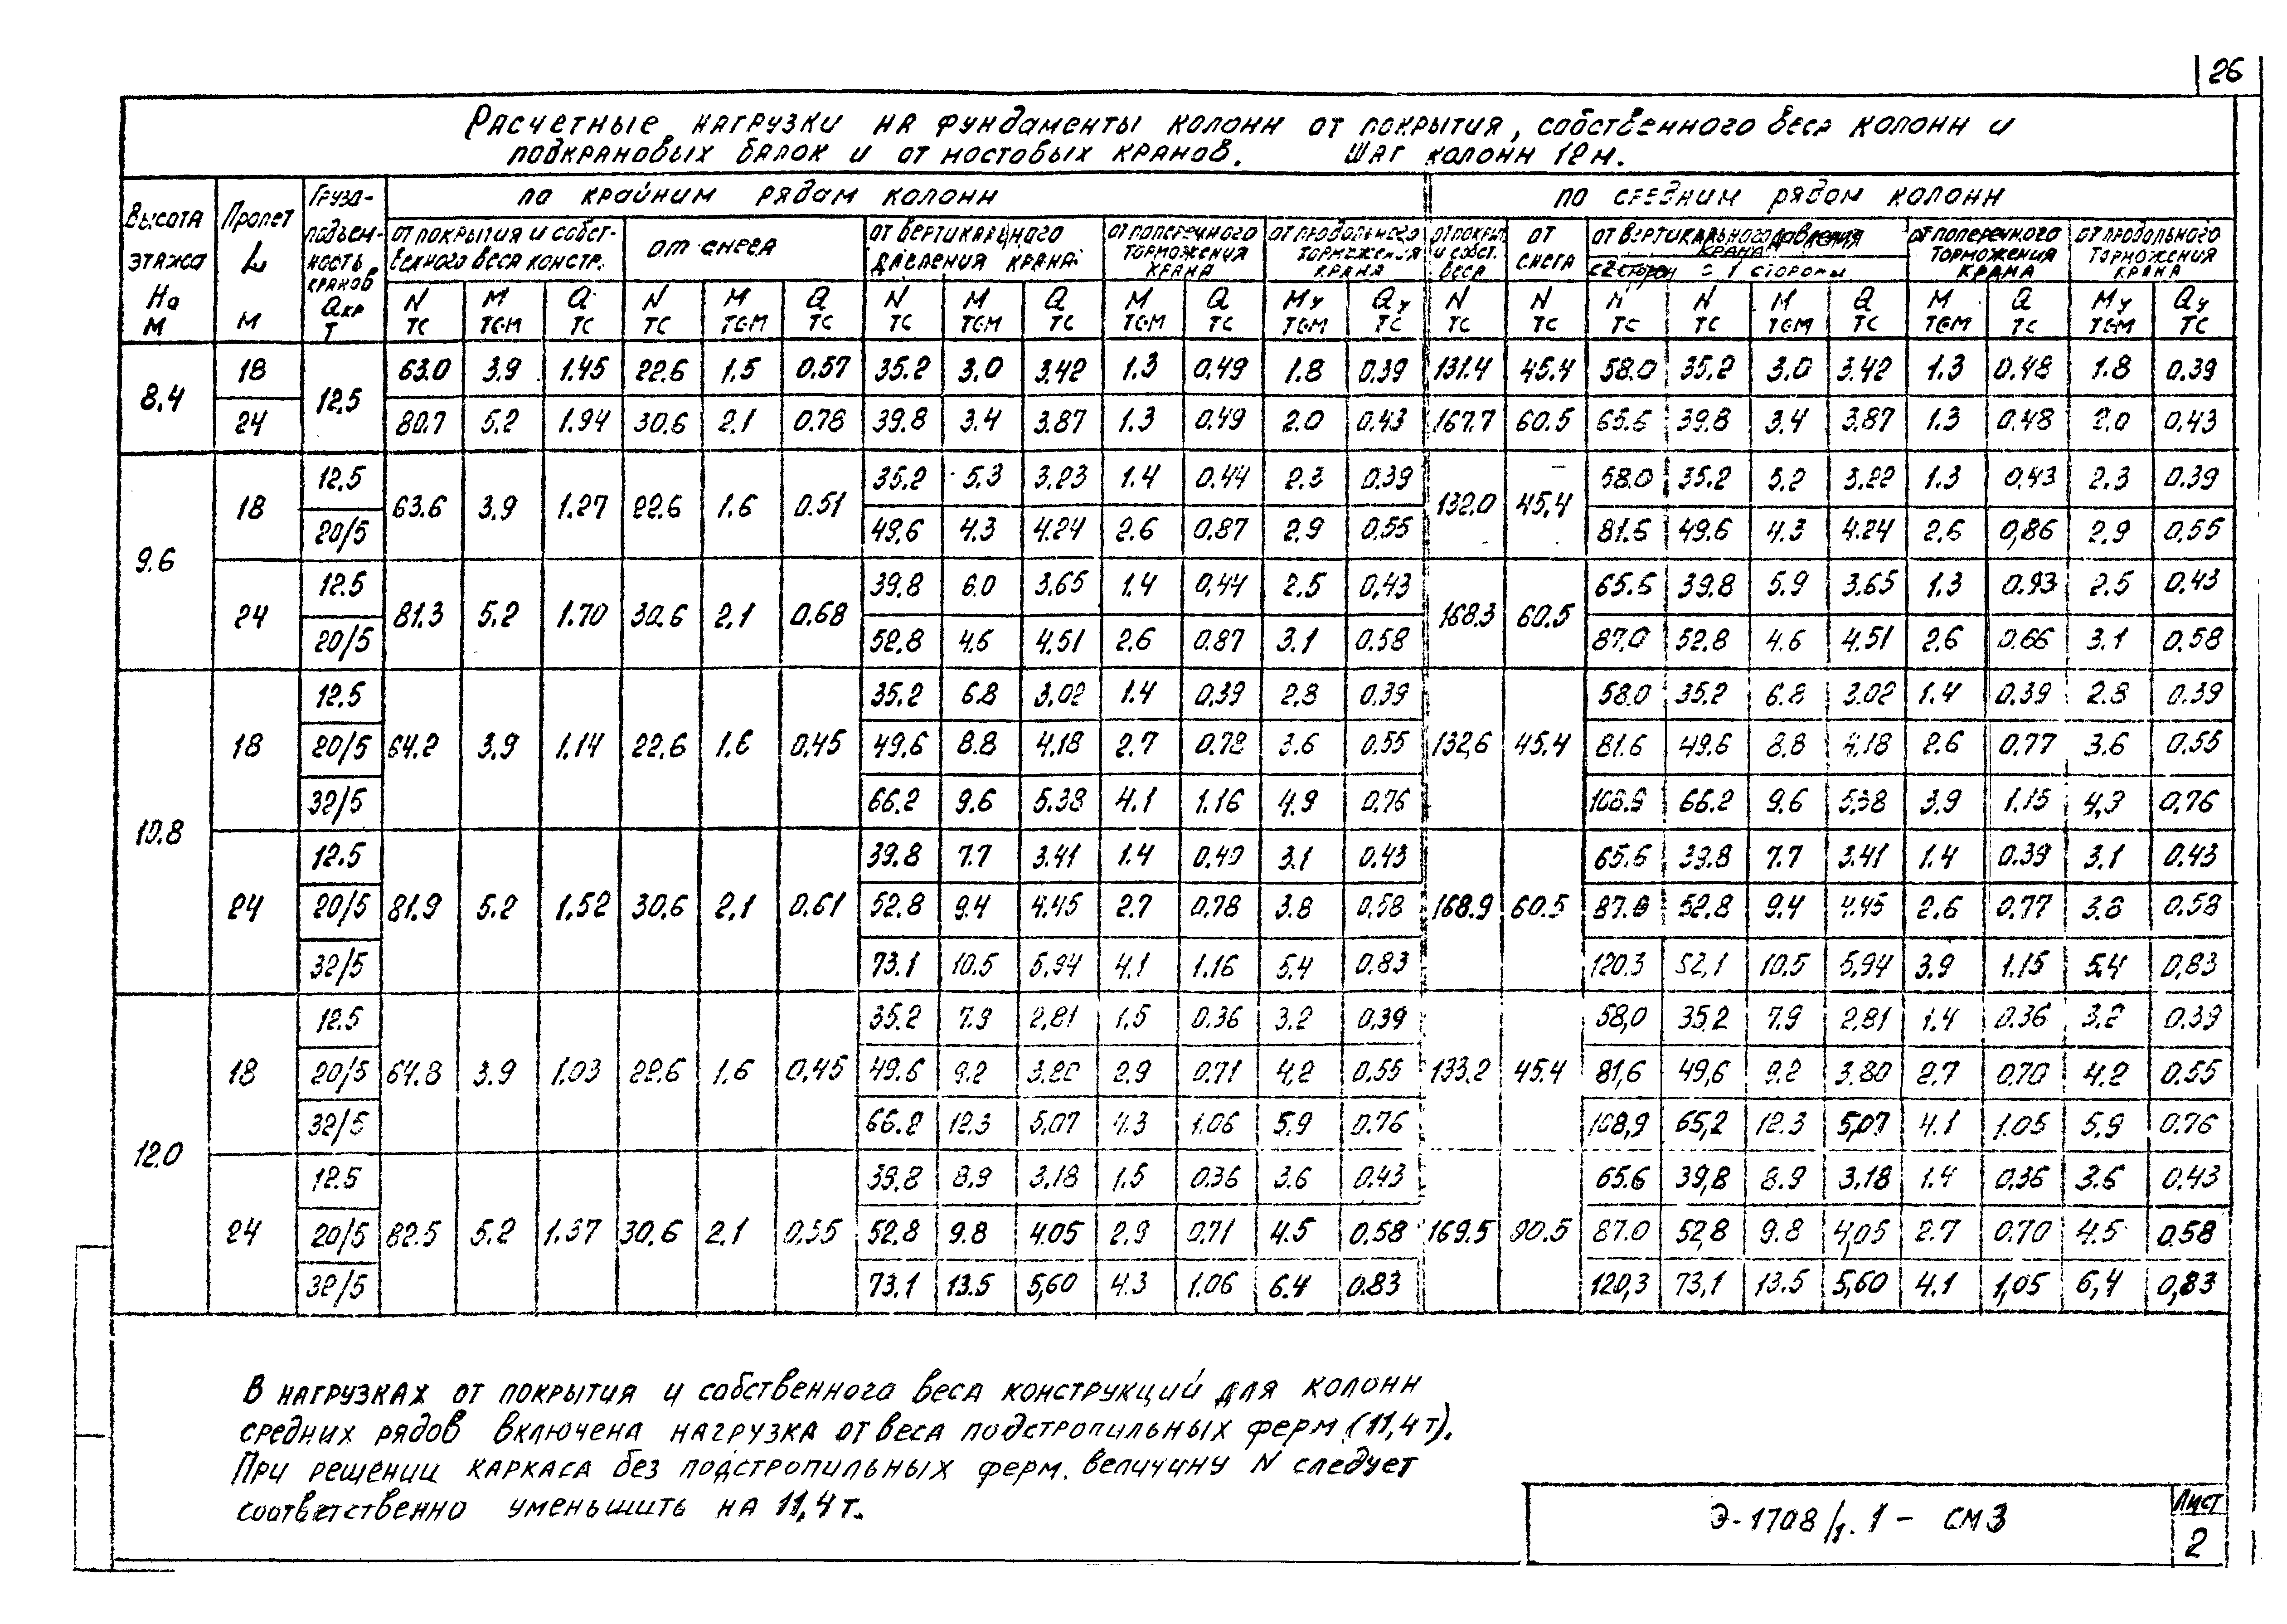 26
Расчетные нагрузки на фундаменты колонн от покрытия, собственного веса колонн и
подкрановых балок и от мостовых кранов. Шаг колонн 12 м.
Высота этажа Hо м | Пролет L м | Грузо-подъем-ность кранов Qкр т | по крайним рядам колонн | по средним рядам колонн
от покрытия и собст-венного веса констр. | от снега | от вертикального давления крана | от поперечного торможения крана | от продольного торможения крана | от покрыт. и собст. веса | от снега | от вертикального давления крана | от поперечного торможения крана | от продольного торможения крана
с 2 сторон | с 1 стороны
N тс | M тсм | Q тс | N тс | M тсм | Q тс | N тс | M тсм | Q тс | M тсм | Q тс | Mу тсм | Qу тс | N тс | N тс | N тс | N тс | M тсм | Q тс | M тсм | Q тс | Mу тсм | Qу тс
8.4 | 18 | 12.5 | 63.0 | 3.9 | 1.45 | 22.6 | 1.5 | 0.57 | 35.2 | 3.0 | 3.42 | 1.3 | 0.49 | 1.8 | 0.39 | 131.4 | 45.4 | 58.0 | 35.2 | 3.0 | 3.42 | 1.3 | 0.48 | 1.8 | 0.39
24 | 80.7 | 5.2 | 1.94 | 30.6 | 2.1 | 0.78 | 39.8 | 3.4 | 3.87 | 1.3 | 0.49 | 2.0 | 0.43 | 167.7 | 60.5 | 65.6 | 39.8 | 3.4 | 3.87 | 1.3 | 0.48 | 2.0 | 0.43
9.6 | 18 | 12.5 | 63.6 | 3.9 | 1.27 | 22.6 | 1.6 | 0.51 | 35.2 | 5.3 | 3.23 | 1.4 | 0.44 | 2.3 | 0.39 | 132.0 | 45.4 | 58.0 | 35.2 | 5.2 | 3.22 | 1.3 | 0.43 | 2.3 | 0.39
20/5 | 49.6 | 4.3 | 4.24 | 2.6 | 0.87 | 2.9 | 0.55 | 81.6 | 49.6 | 4.3 | 4.24 | 2.6 | 0,86 | 2.9 | 0.55
24 | 12.5 | 81.3 | 5.2 | 1.70 | 30.6 | 2.1 | 0.68 | 39.8 | 6.0 | 3.65 | 1.4 | 0,44 | 2.5 | 0,43 | 168.3 | 60.5 | 65.6 | 39.8 | 5.9 | 3.65 | 1.3 | 0.93 | 2.5 | 0.43
20/5 | 52.8 | 4.6 | 4.51 | 2.6 | 0.87 | 3.1 | 0.58 | 87.0 | 52.8 | 4.6 | 4.51 | 2.6 | 0.66 | 3.1 | 0.58
10.8 | 18 | 12.5 | 64.2 | 3.9 | 1.14 | 22.6 | 1.6 | 0.45 | 35.2 | 6.8 | 3,02 | 1.4 | 0,39 | 2.8 | 0.39 | 132,6 | 45.4 | 58.0 | 35.2 | 6.8 | 3.02 | 1.4 | 0.39 | 2.8 | 0.39
20/5 | 49,6 | 8.8 | 4.18 | 2.7 | 0.78 | 3.6 | 0.55 | 81.6 | 49.6 | 8.8 | 4.18 | 2.6 | 0.77 | 3.6 | 0.55
32/5 | 66.2 | 9.6 | 5.38 | 4.1 | 1.16 | 4.9 | 0.76 | 108.9 | 66.2 | 9.6 | 5,38 | 3.9 | 1.15 | 4,9 | 0,76
24 | 12.5 | 81.9 | 5.2 | 1.52 | 30.6 | 2.1 | 0.61 | 39.8 | 7.7 | 3.41 | 1.4 | 0.40 | 3.1 | 0.43 | 168.9 | 60.5 | 65.6 | 39.8 | 7.7 | 3.41 | 1.4 | 0.39 | 3.1 | 0.43
20/5 | 52.8 | 9.4 | 4.45 | 2.7 | 0.78 | 3.8 | 0.58 | 87.0 | 52.8 | 9.4 | 4.45 | 2.6 | 0.77 | 3.8 | 0.58
32/5 | 73.1 | 10.5 | 5.94 | 4.1 | 1.16 | 5.4 | 0.83 | 120.3 | 52,1 | 10.5 | 5,94 | 3.9 | 1.15 | 5.4 | 0,83
12.0 | 18 | 12.5 | 64.8 | 3.9 | 1.03 | 22.6 | 1.6 | 0.45 | 35.2 | 7.9 | 2.81 | 1.5 | 0.36 | 3.2 | 0.39 | 133.2 | 45.4 | 58,0 | 35.2 | 7.9 | 2.81 | 1.4 | 0.36 | 3.2 | 0.39
20/5 | 49.6 | 9.2 | 3.80 | 2.9 | 0.71 | 4,2 | 0.55 | 81,6 | 49,6 | 9.2 | 3.80 | 2.7 | 0.70 | 4.2 | 0.55
32/5 | 66.2 | 12.3 | 5,07 | 4.3 | 1.06 | 5.9 | 0.76 | 108,9 | 65,2 | 12.3 | 5,07 | 4.1 | 1.05 | 5.9 | 0.76
24 | 12.5 | 82.5 | 5.2 | 1.37 | 30.6 | 2.1 | 0.55 | 39,8 | 8.9 | 3.18 | 1.5 | 0.36 | 3.6 | 0.43 | 169.5 | 90.5 | 65.6 | 39,8 | 8.9 | 3.18 | 1.4 | 0.36 | 3.6 | 0.43
20/5 | 52.8 | 9.8 | 4.05 | 2.9 | 0.71 | 4.5 | 0.58 | 87.0 | 52,8 | 9.8 | 4,05 | 2.7 | 0.70 | 4.5 | 0.58
32/5 | 73.1 | 13.5 | 5,60 | 4.3 | 1.06 | 6.4 | 0.83 | 120,3 | 73,1 | 13.5 | 5,60 | 4.1 | 1,05 | 6,4 | 0,83
В нагрузках от покрытия и собственного веса конструкций для колонн
средних рядов включена нагрузка от веса подстропильных ферм (11,4т).
При решении каркаса без подстропильных ферм. величину N следует
соответственно уменьшить на 11,4т.
Э-1708/1.1 - СМ3
Лист
2